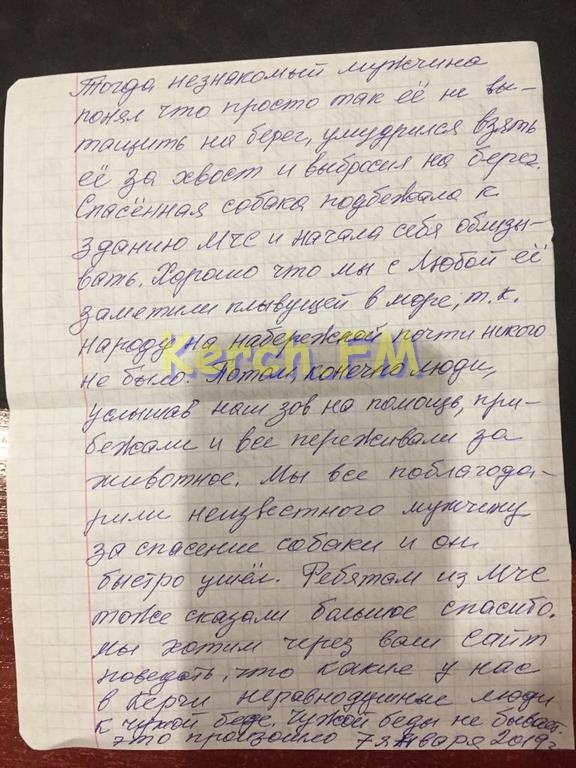 Тогда незнакомый мужчина
понял что просто так её не вы-
тащить на берег, умудрился взять
её за хвост и выбросил на берег.
Спасённая собака подбежала к
зданию МЧС и начала себя облизы-
вать. Хорошо что мы с Любой её
заметили плывущей в море, т.к.
народу на набережной почти никого
Kerch FM
не было. Потом, конечно люди,
услышав наш зов на помощь, при-
бежали и все переживали за
животное. Мы все поблагода-
рили неизвестного мужчину
за спасение собаки и он
быстро ушёл. Ребятам из МЧС
тоже сказали большое спасибо.
Мы хотим через ваш сайт
поведать, что какие у нас
в Керчи неравнодушные люди
к чужой беде. Чужой беды не бывает.
Это произошло 7 января 2019г.